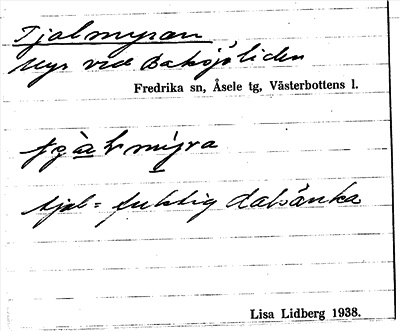 Tjalmyran
Myr vid Baksjöliden
Fredrika sn, Åsele tg, Västerbottens l.
mỳra
tjal = fuktig dalsänka
Lisa Lidberg 1938.